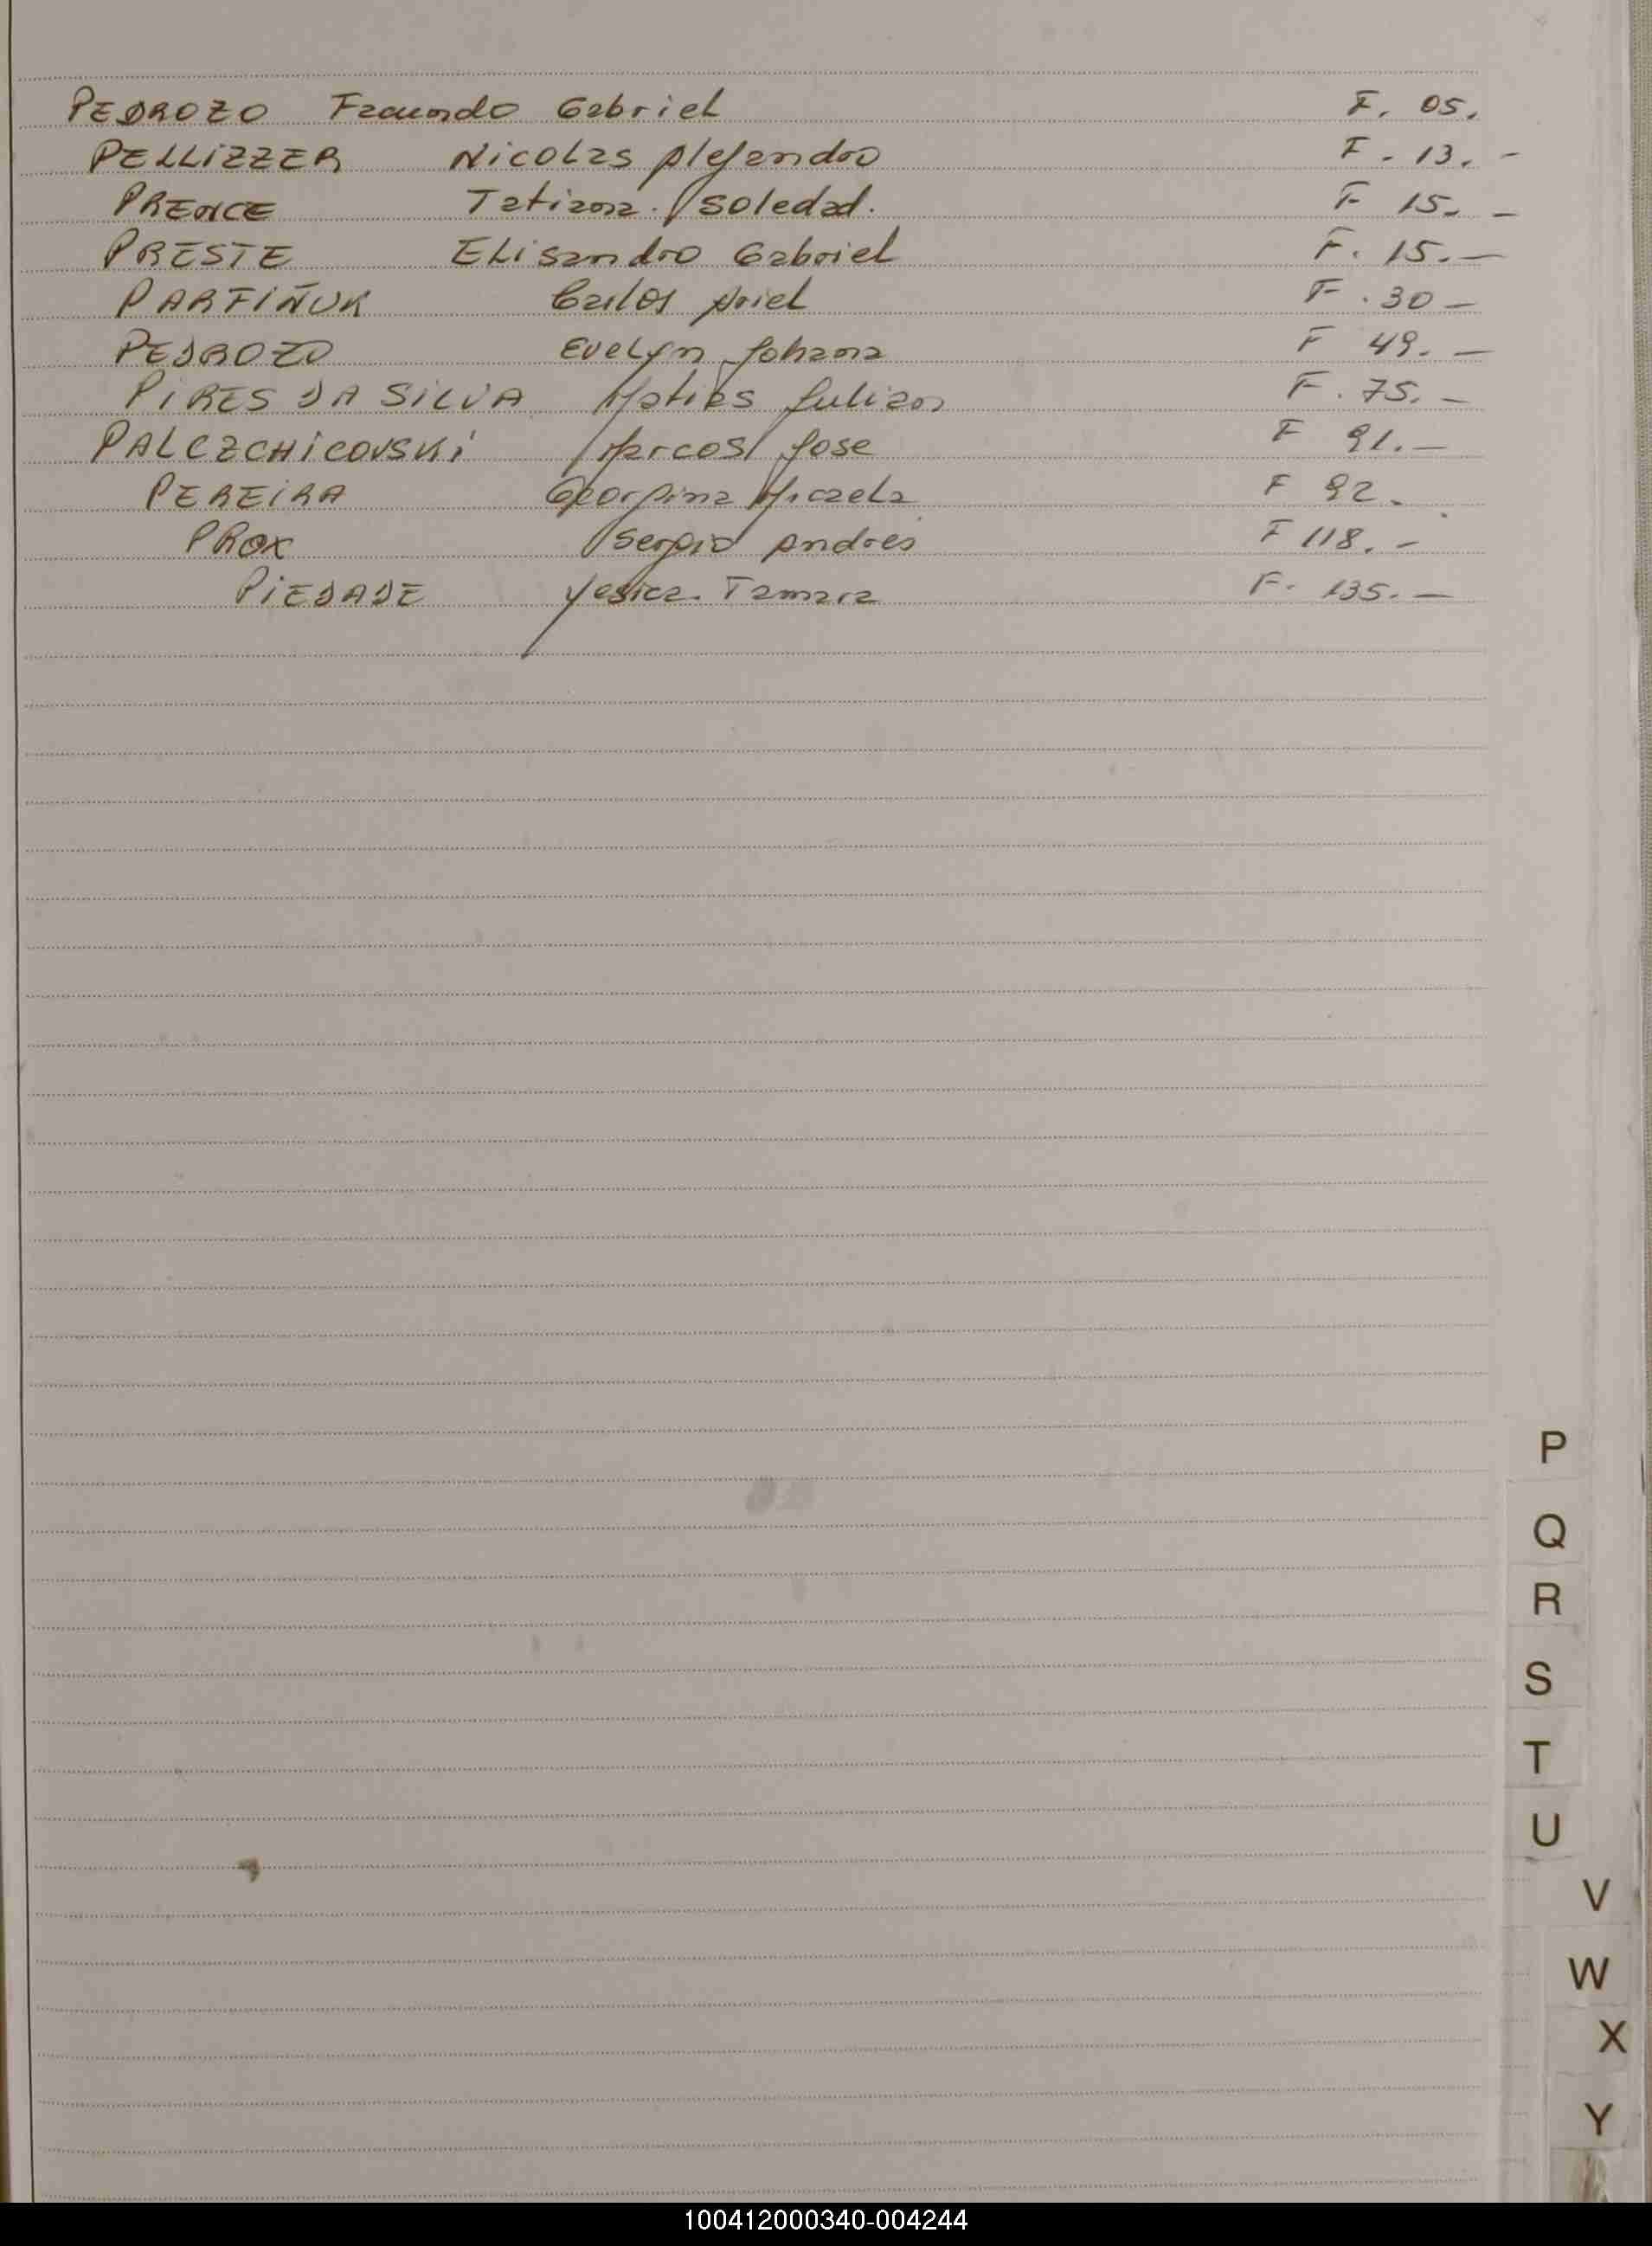 PEDROZO Facundo Gabriel F. 05.
PELLIZZER Nicolas Alejandro F. 13. -
PRENCE Tatiana Soledad. F 15. -
PRESTE Elisandro Gabriel F. 15. -
PARFIÑUK Carlos Ariel F. 30 -
PEDROZO Evelyn Johana F 49. -
PIRES DA SILVA Matias Julian F. 75. -
PALCZCHICOVSKI Marcos Jose F 91. -
PEREIRA Georgina Micaela F 92.
PROX Sergio Andres F 118. -
PIEDADE Yesica Tamara F. 135. -
P
Q
R
S
T
U
V
W
X
Y
100412000340-004244